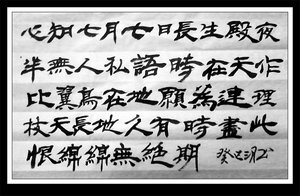 心知七月七日長生殿夜
半無人私語時在天作
比翼鳥在地願為連理
枝天長地久有時盡此
恨綿綿無絕期 癸巳